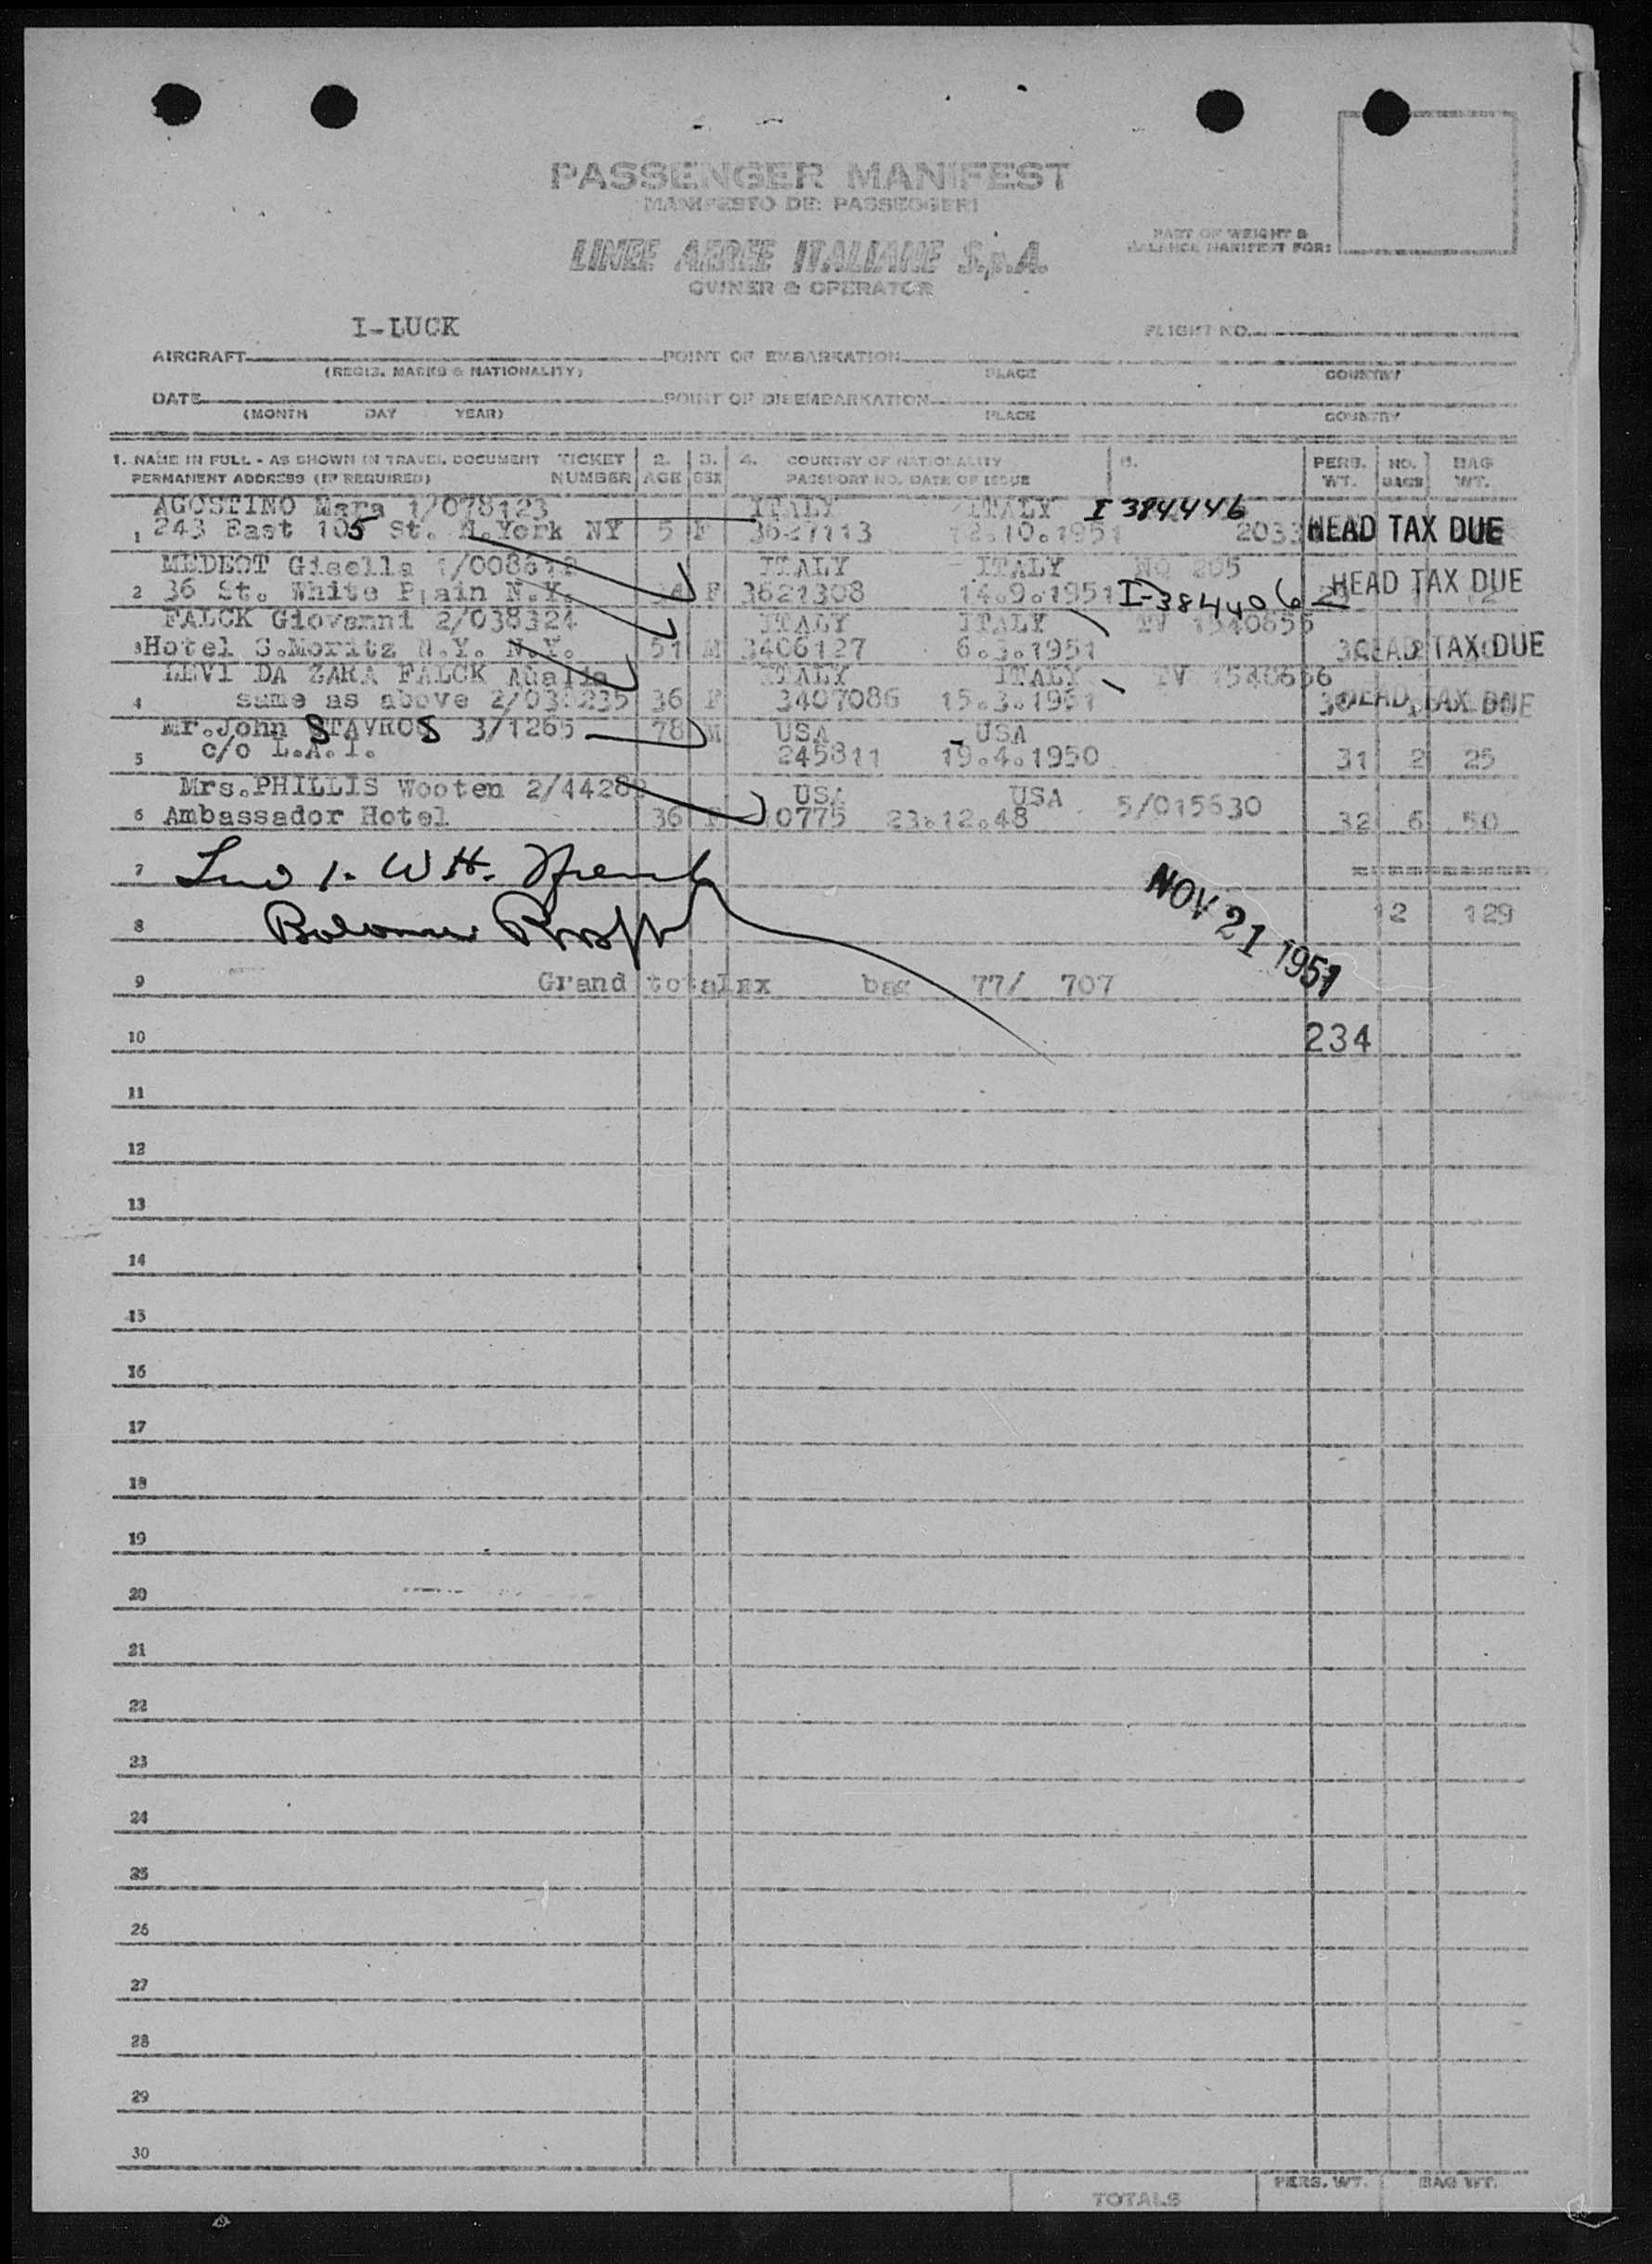 PASSENGER MANIFEST
MANIFESTO DEI PASSEGGERI
LINEE AEREE ITALIANE S.p.A.
OWNER & OPERATOR
PART OF WEIGHT &
BALANCE MANIFEST FOR:
I-LUCK
FLIGHT NO.
AIRCRAFT POINT OF EMBARKATION
(REGIS. MARKS & NATIONALITY) PLACE COUNTRY
DATE POINT OF DISEMBARKATION
(MONTH DAY YEAR) PLACE COUNTRY
1. NAME IN FULL - AS SHOWN IN TRAVEL DOCUMENT TICKET 2. 3. 4. COUNTRY OF NATIONALITY PERS. NO. BAG
PERMANENT ADDRESS (IF REQUIRED) NUMBER AGE SEX PASSPORT NO. DATE OF ISSUE WT. BAGS WT.
AGOSTINO Mara 1/078123 ITALY ITALY I 384446
1 243 East 105 St. N.York NY 5 F 3627113 12.10.1951 2033 HEAD TAX DUE
MEDEOT Gisella ITALY ITALY NQ 205
2 36 St. White Plain N.Y. 34 F 3621308 14.9.1951 I-384406 HEAD TAX DUE
FALCK Giovanni 2/038324 ITALY ITALY TV 1540655
3 Hotel S.Moritz N.Y. N.Y. 51 M 3406127 6.3.1951 HEAD TAX DUE
LEVI DA ZARA FALCK ITALY ITALY TV 1540656
4 same as above 36 F 3407086 15.3.1951 HEAD TAX DUE
Mr.John STAVROS 3/1265 78 M USA USA
5 c/o L.A.I. 245811 19.4.1950 31 2 25
Mrs.PHILLIS Wooten USA USA 5/015630
6 Ambassador Hotel 36 F 10775 23.12.48 32 6 50
7
NOV 21 1951
8 12 129
9 Grand bag 77/ 707
10 234
11
12
13
14
15
16
17
18
19
20
21
22
23
24
25
26
27
28
29
30
TOTALS PERS. WT. BAG WT.